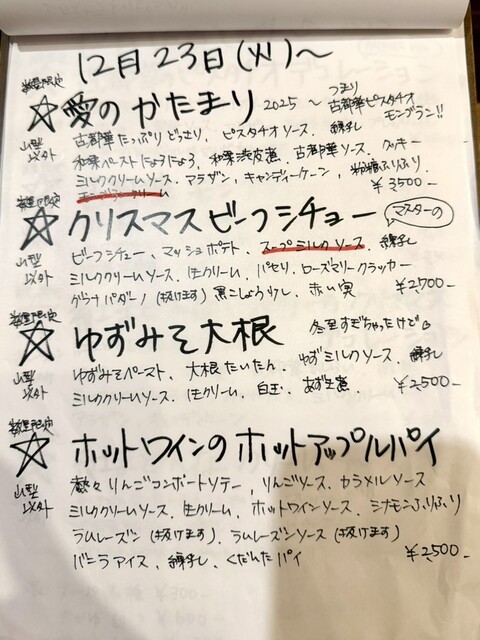 12月23日(火)〜
数量限定
☆愛のかたまり 2025〜 つまり 古都華ピスタチオモンブラン!!
山型以外
古都華たっぷりどっさり、ピスタチオソース、練乳
和栗ペーストにょろにょろ、和栗渋皮煮、古都華ソース、クッキー
ミルククリームソース、アラザン、キャンディーケーン、粉糖ふりふり
¥3500-
数量限定
☆クリスマスビーフシチュー マスターの
山型以外
ビーフシチュー、マッシュポテト、スープミルクソース、練乳
ミルククリームソース、生クリーム、パセリ、ローズマリークラッカー
グラナパダーノ(抜けます)黒こしょう少し、赤い実 ¥2,700-
数量限定
☆ゆずみそ大根 冬至すぎちゃったけど
山型以外
ゆずみそペースト、大根たいたん、ゆずミルクソース、練乳
ミルククリームソース、生クリーム、白玉、あずき煮 ¥2,500-
数量限定
☆ホットワインのホットアップルパイ
山型以外
熱々りんごコンポートソテー、りんごソース、カラメルソース
ミルククリームソース、生クリーム、ホットワインソース、シナモンふりふり
ラムレーズン(抜けます)、ラムレーズンソース(抜けます)
バニラアイス、練乳、くだんたパイ ¥2,500-